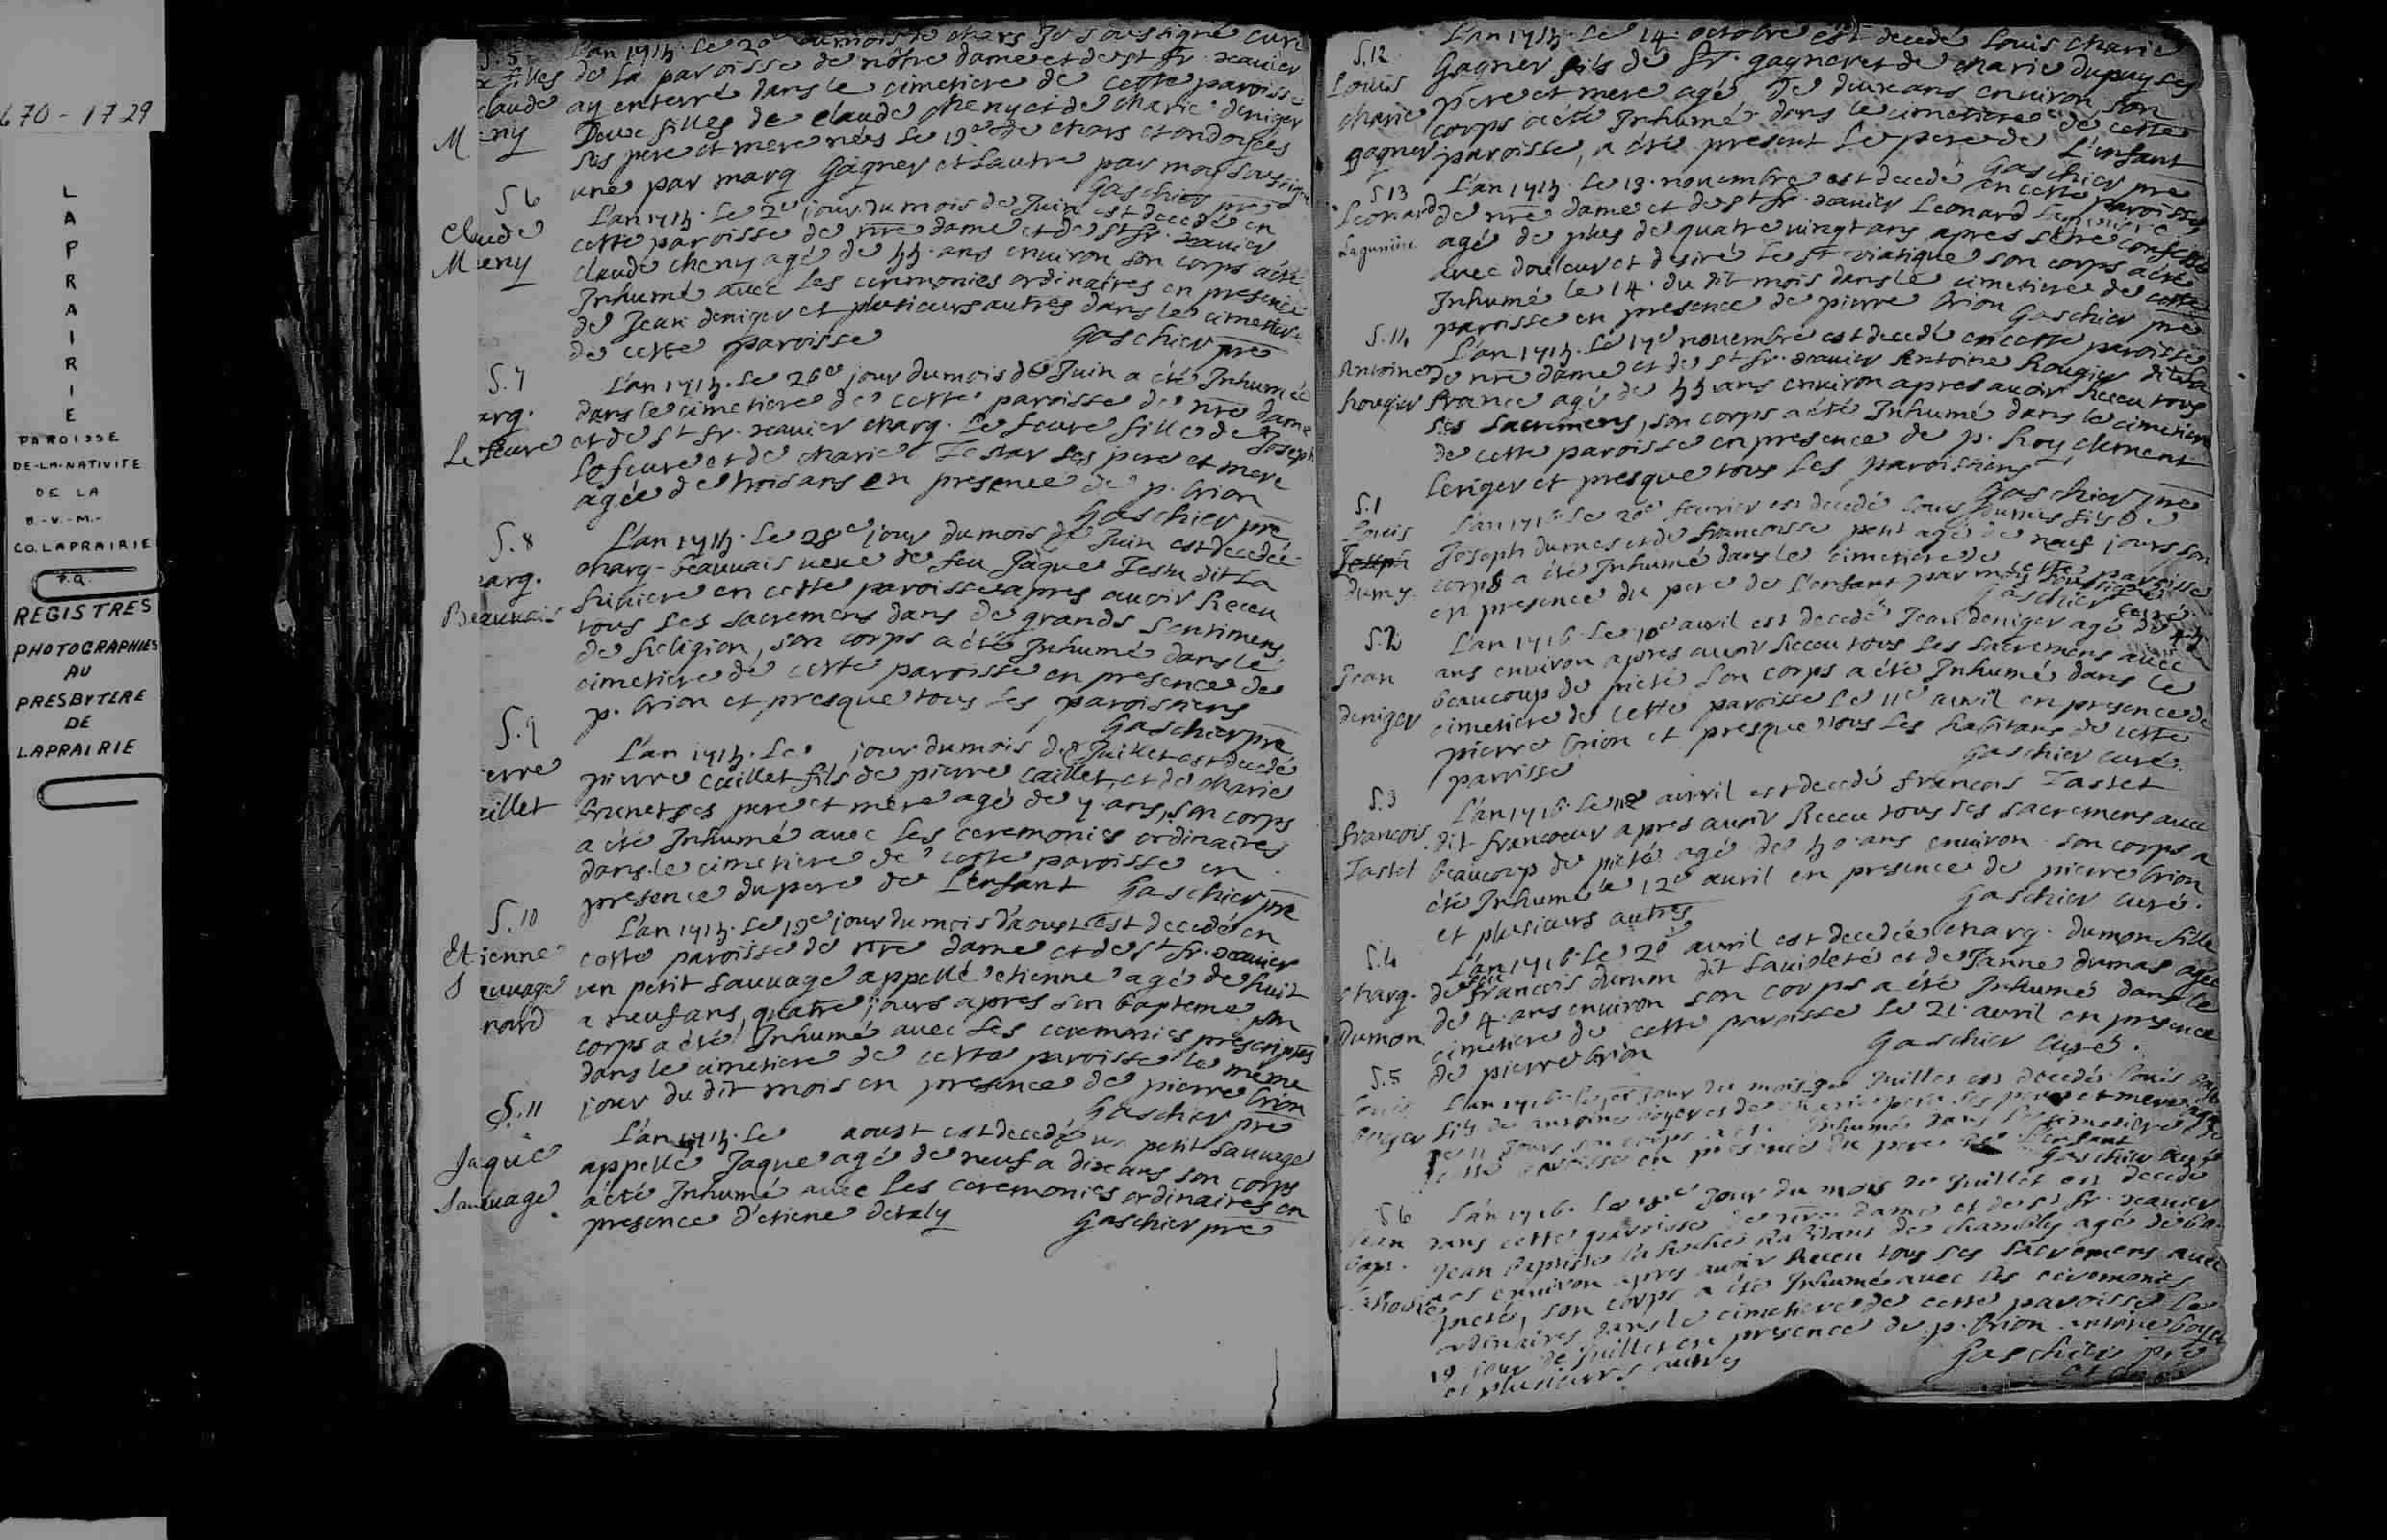 670-1729
LAPRAIRIE
PAROISSE
DE-LA-NATIVITE
DE LA
B.-V.-M.-
CO. LAPRAIRIE
P.Q.
REGISTRES
PHOTOGRAPHIES
AU
PRESBYTERE
DE
LAPRAIRIE
S.5
filles
claude
Meny
L'an 1715. Le 20e du mois de Mars Je soussigné curé
de La paroisse de nôtre dame et de st fr. xavier
ay enterré dans le cimetiere de cette paroisse
Deux filles de claude Meny et de Marie deniger
ses pere et mere nées le 19e de Mars et ondoyées
une par marg Gagner et Lautre par moy soussigné
Gaschier pre
S6
Claude
Meny
L'an 1715. Le 2e jour du mois de Juin est decedé en
cette paroisse de nre dame et de st fr. xavier
claude Meny agé de 55. ans environ son corps a été
Inhumé avec les ceremonies ordinaires en presence
de Jean deniger et plusieurs autres dans le cimetiere
de cette paroisse
Gaschier pre
S.7
arg.
Lefeuvre
L'an 1715. Le 26e jour du mois de Juin a été Inhumée
dans le cimetiere de cette paroisse de nre dame
et de st fr. xavier Marg. Lefeuvre fille de Joseph
Lefeuvre et de Marie Testar ses pere et mere
agée de trois ans en presence de p. brion
Gaschier pre
S.8
arg.
Beauvais
L'an 1715. Le 28e jour du mois de Juin est decedée
Marg-beauvais veuve de feu Jaque Testu dit La
Riviere en cette paroisse apres avoir Receu
tous ses sacremens dans de grands sentimens
de Religion, son corps a été Inhumé dans le
cimetiere de cette paroisse en presence de
p. brion et presque tous les paroissiens
Gaschier pre
S.9
ierre
aillet
L'an 1715. Le jour du mois de Juillet est decedé
pierre caillet fils de pierre caillet, et de Marie
brunet ses pere et mere agé de 7. ans, son corps
a été Inhumé avec les ceremonies ordinaires
dans le cimetiere de cette paroisse en
presence du pere de L'enfant Gaschier pre
S.10
Etienne
Sauvage
L'an 1715. Le 19e jour du mois d'aoust est decedé en
cette paroisse de nre dame et de st fr. xavier
un petit sauvage appellé etienne agé de huit
a neuf ans, quatre jours apres son bapteme son
corps a été Inhumé avec les ceremonies prescriptes
dans le cimetiere de cette paroisse le même
jour du dit mois en presence de pierre brion
Gaschier pre
S.11
Jaque
Sauvage
L'an 1715. Le aoust est decedé un petit sauvage
appellé Jaque agé de neuf a dix ans son corps
a été Inhumé avec les ceremonies ordinaires en
presence d'etiene
Gaschier pre
S.12
Louis
Marie
gagner
L'an 1715. Le 14. octobre est decedé Louis Marie
Gagner fils de fr. gagner et de Marie dupuy ses
pere et mere agé de deux ans environ son
corps a été Inhumé dans le cimetiere de cette
paroisse, a été present le pere de L'enfant
Gaschier pre
S13
Leonard
L'an 1715. Le 13. novembre est decedé en cette paroisse
de nre dame et de st fr. xavier Leonard
agé de plus de quatre vingt ans apres s'etre confessé
avec douleur et desiré Le st viatique son corps a été
Inhumé le 14. du dit mois dans le cimetiere de cette
paroisse en presence de pierre brion Gaschier pre
S.14
Antoine
Rougier
L'an 1715. Le 17e novembre est decedé en cette paroisse
de nre dame et de st fr. xavier Antoine Rougier dit La
france agé de 55 ans environ apres avoir Receu tous
ses sacremens, son corps a été Inhumé dans le cimetiere
de cette paroisse en presence de p. Roy clement
Leriger et presque tous les paroissiens
Gaschier pre
S.1
Louis
Joseph
L'an 1716. Le 20e fevrier est decedé Louis dumes fils de
Joseph dumes et de francoise petit agé de neuf jours son
corps a été Inhumé dans le cimetiere de cette paroisse
en presence du pere de L'enfant par moy soussigné
Gaschier curé
S.2
Jean
deniger
L'an 1716. Le 10e avril est decedé Jean deniger agé de
ans environ apres avoir Receu tous les sacremens avec
beaucoup de pieté son corps a été Inhumé dans le
cimetiere de cette paroisse le 11e avril en presence de
pierre brion et presque tous les habitans de cette
paroisse
Gaschier curé.
S.3
francois
Tastet
L'an 1716. Le avril est decedé francois Tastet
dit francoeur apres avoir Receu tous ses sacremens avec
beaucoup de pieté agé de 50. ans environ son corps a
été Inhumé le 12e avril en presence de pierre brion
et plusieurs autres
Gaschier curé.
S.4
Marg.
Dumon
L'an 1716. Le 20 avril est decedée Marg. dumon fille
de francois dumon dit Lavioleté et de Janne dumas agée
de 4. ans environ son corps a été Inhumé dans le
cimetiere de cette paroisse le 21. avril en presence
de pierre brion
Gaschier curé.
S.5
Louis
boyer
L'an 1716. le jour du mois de Juillet est decedé Louis
fils de antoine boyer et de Marie ses pere et mere agé
de 11 Jours son corps a été Inhumé dans le cimetiere de
cette paroisse en presence du pere de L'enfant
Gaschier curé
S6
Jean
bapt.
L'an 1716. Le jour du mois de Juillet est decedé
dans cette paroisse de nre dame et de st fr. xavier
Jean baptiste La Roche habitant de chambly agé de
ans environ apres avoir Receu tous ses sacremens avec
pieté, son corps a été Inhumé avec les ceremonies
ordinaires dans le cimetiere de cette paroisse le
19 jour de Juillet en presence de p. brion antoine boyer
et plusieurs autres
Gaschier pre